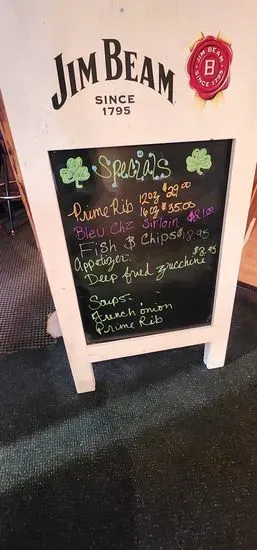 JIM BEAM
SINCE
1795
JIM BEAM
B
SINCE 1795
Specials
Prime Rib 12oz $29.00
16oz $35.00
Bleu Chz Sirloin $21.00
Fish & Chips $18.95
Appetizer-
Deep fried zucchini $8.95
Soups-
French onion
Prime Rib